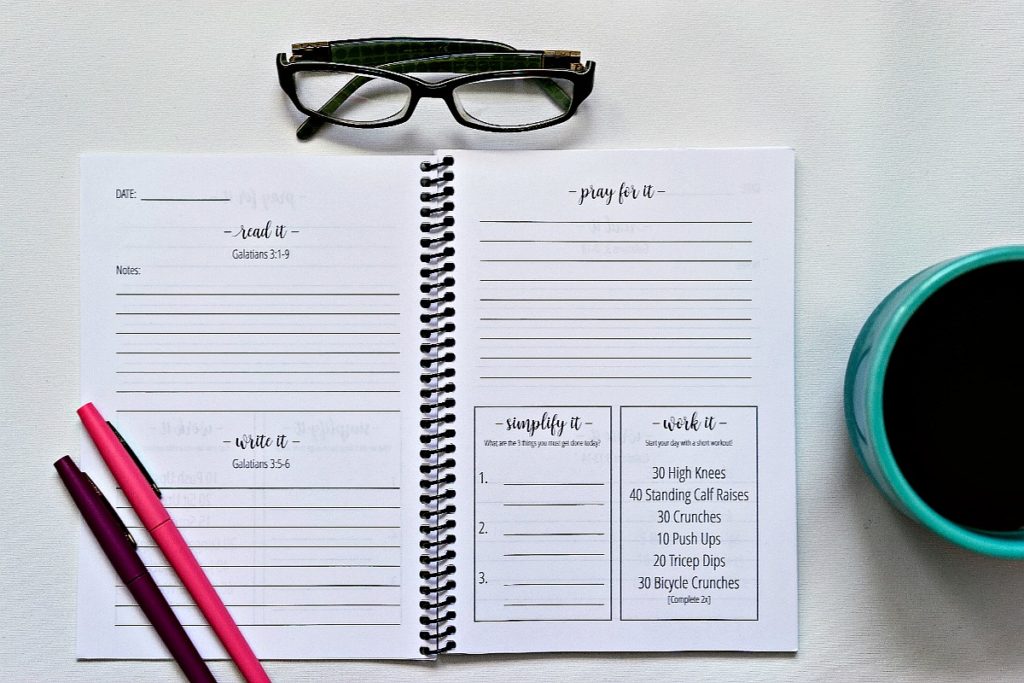 DATE:
– read it –
Galatians 3:1-9
Notes:
– write it –
Galatians 3:5-6
– pray for it –
– simplify it –
What are the 3 things you must get done today?
1.
2.
3.
– work it –
Start your day with a short workout!
30 High Knees
40 Standing Calf Raises
30 Crunches
10 Push Ups
20 Tricep Dips
30 Bicycle Crunches
[Complete 2x]